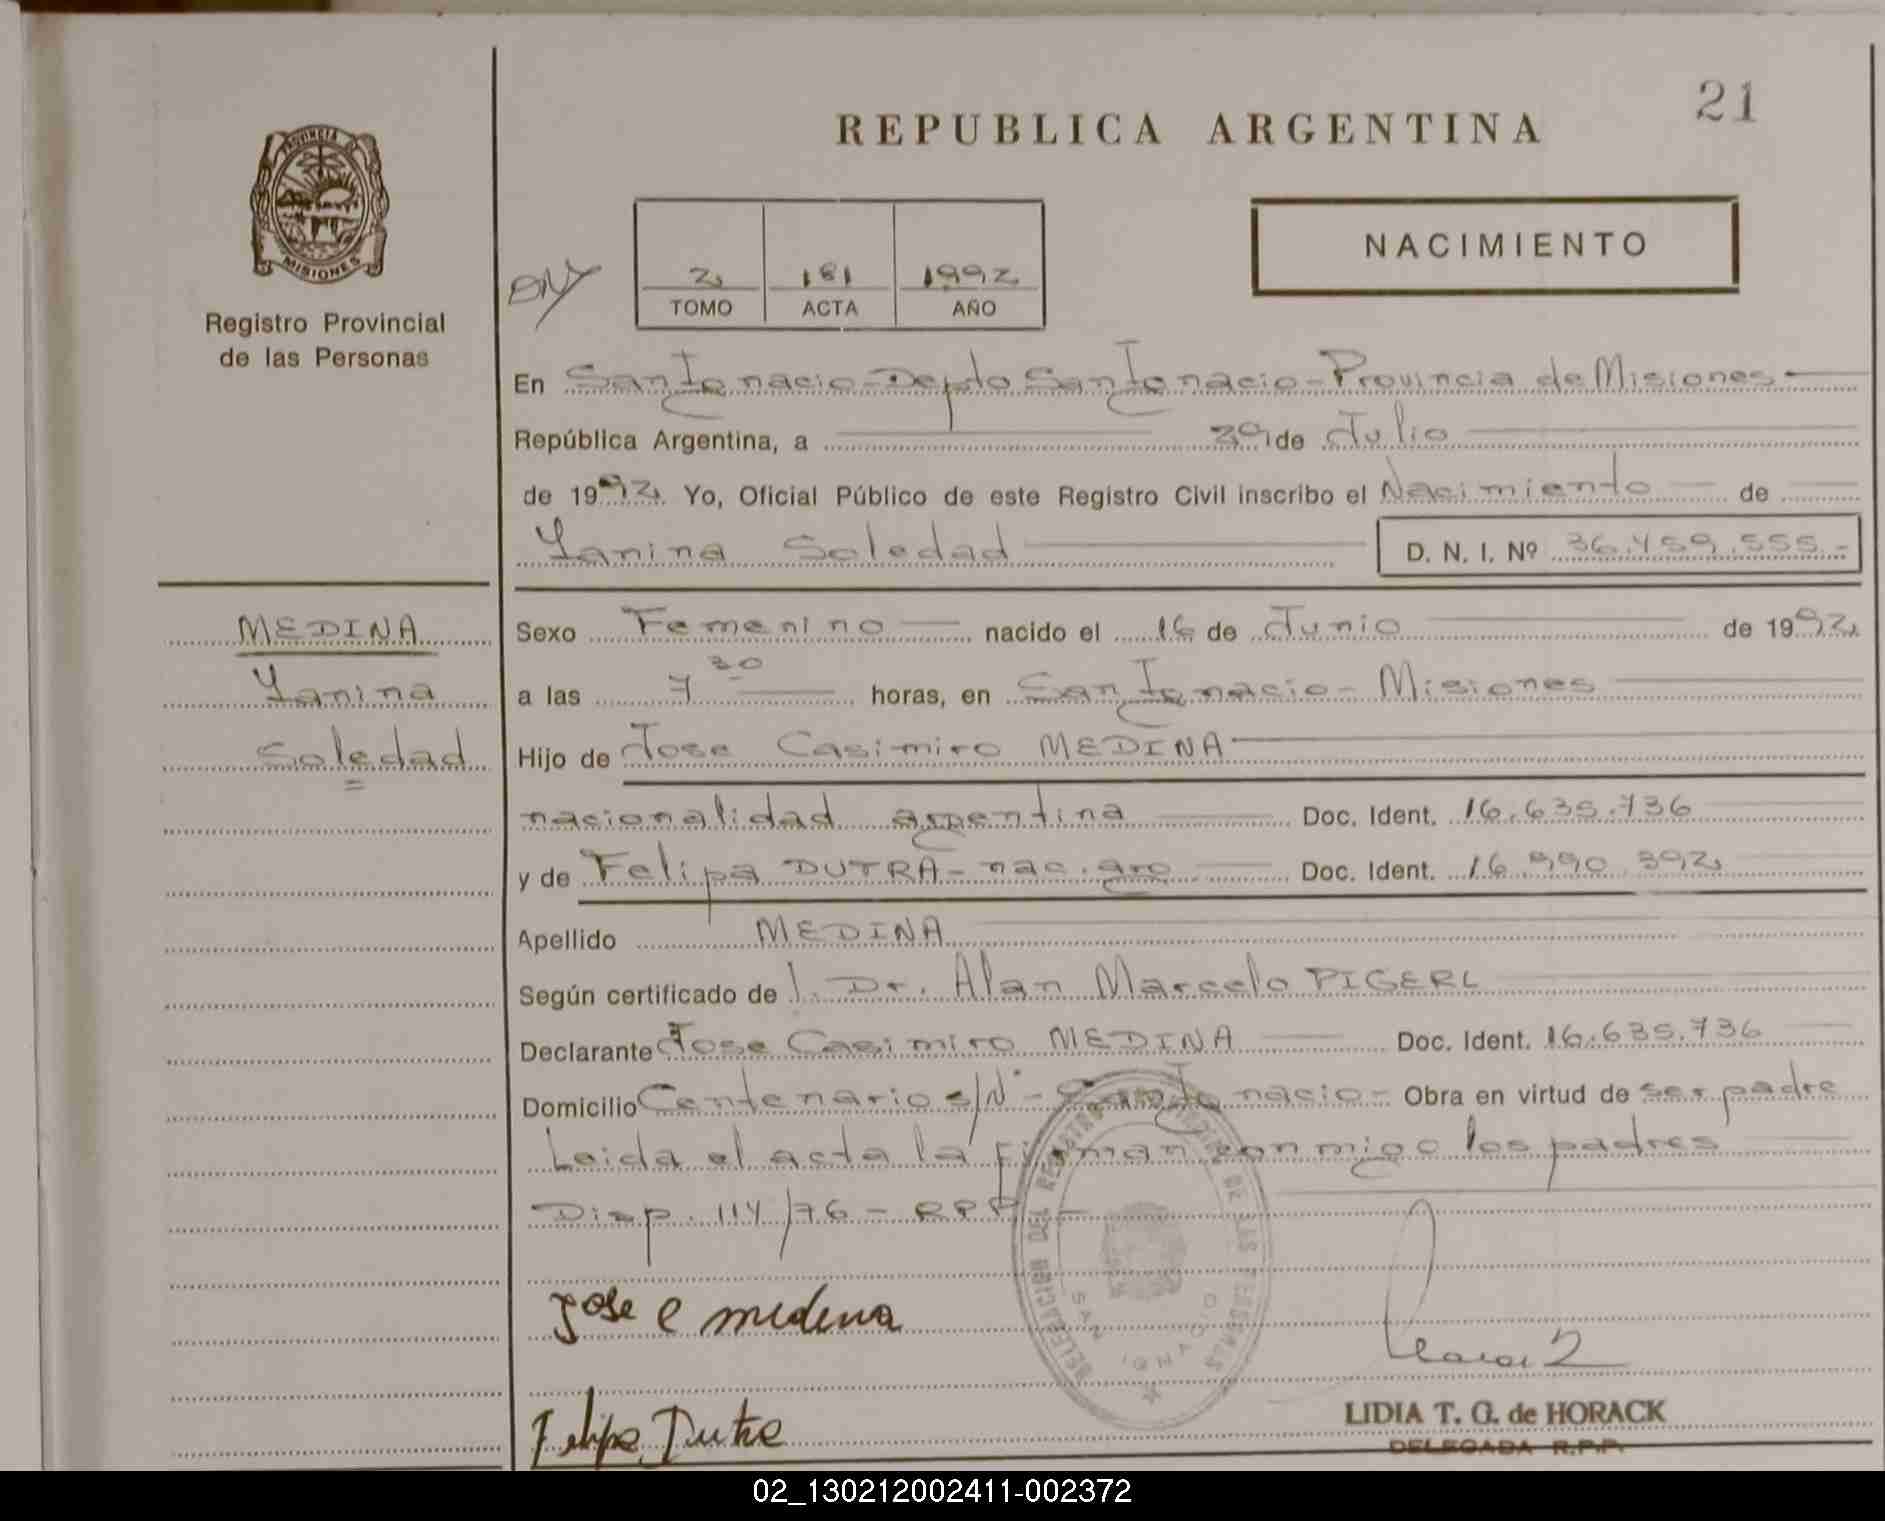 21
REPUBLICA ARGENTINA
PROVINCIA DE MISIONES
NACIMIENTO
2 181 1992
TOMO ACTA AÑO
Registro Provincial
de las Personas
En San Ignacio - Depto San Ignacio - Provincia de Misiones -
República Argentina, a 29 de Julio
de 1992. Yo, Oficial Público de este Registro Civil inscribo el Nacimiento de
Yanina Soledad D. N. I. Nº 36.459.555.-
MEDINA
Yanina
Soledad
Sexo Femenino nacido el 16 de Junio de 1992
a las 7 30 horas, en San Ignacio - Misiones
Hijo de Jose Casimiro MEDINA
nacionalidad argentina Doc. Ident. 16.635.736
y de Felipa DUTRA - nac. arg Doc. Ident. 16.990.392
Apellido MEDINA
Según certificado de l. Dr. Alan Marcelo PIGERL
Declarante Jose Casimiro MEDINA Doc. Ident. 16.635.736
Domicilio Centenario s/Nº - San Ignacio - Obra en virtud de ser padre
Leida el acta la firman conmigo los padres
Disp. 114/76 - RPP -
DELEGACION DEL REGISTRO PROVINCIAL DE LAS PERSONAS
SAN IGNACIO
Jose C medina
Felipa Dutra
LIDIA T. G. de HORACK
DELEGADA R.P.P.
02_130212002411-002372